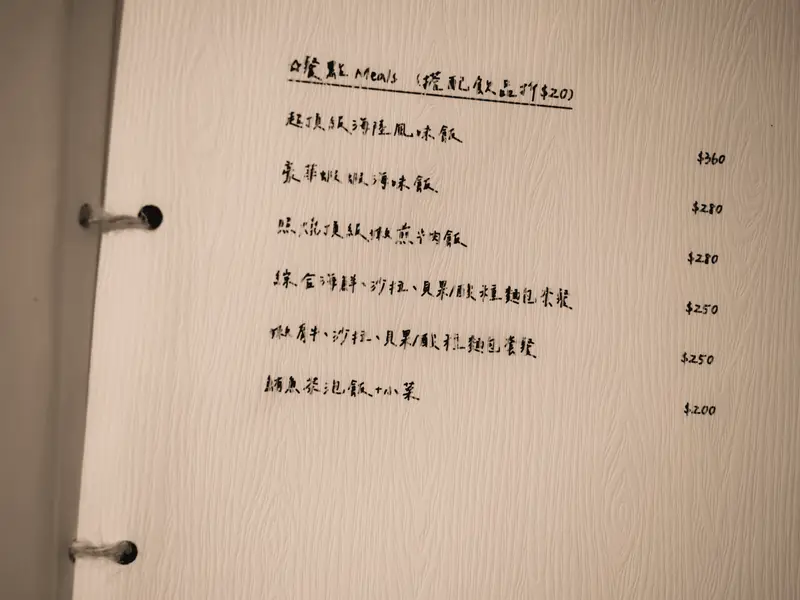 ☆餐點 Meals (搭配飲品折$20)
超頂級海陸風味飯 $360
豪華蝦蝦海味飯 $280
照燒頂級嫩煎牛肉飯 $280
綜合海鮮、沙拉、貝果/酸種麵包套餐 $250
嫩肩牛、沙拉、貝果/酸種麵包套餐 $250
鮪魚茶泡飯+小菜 $200